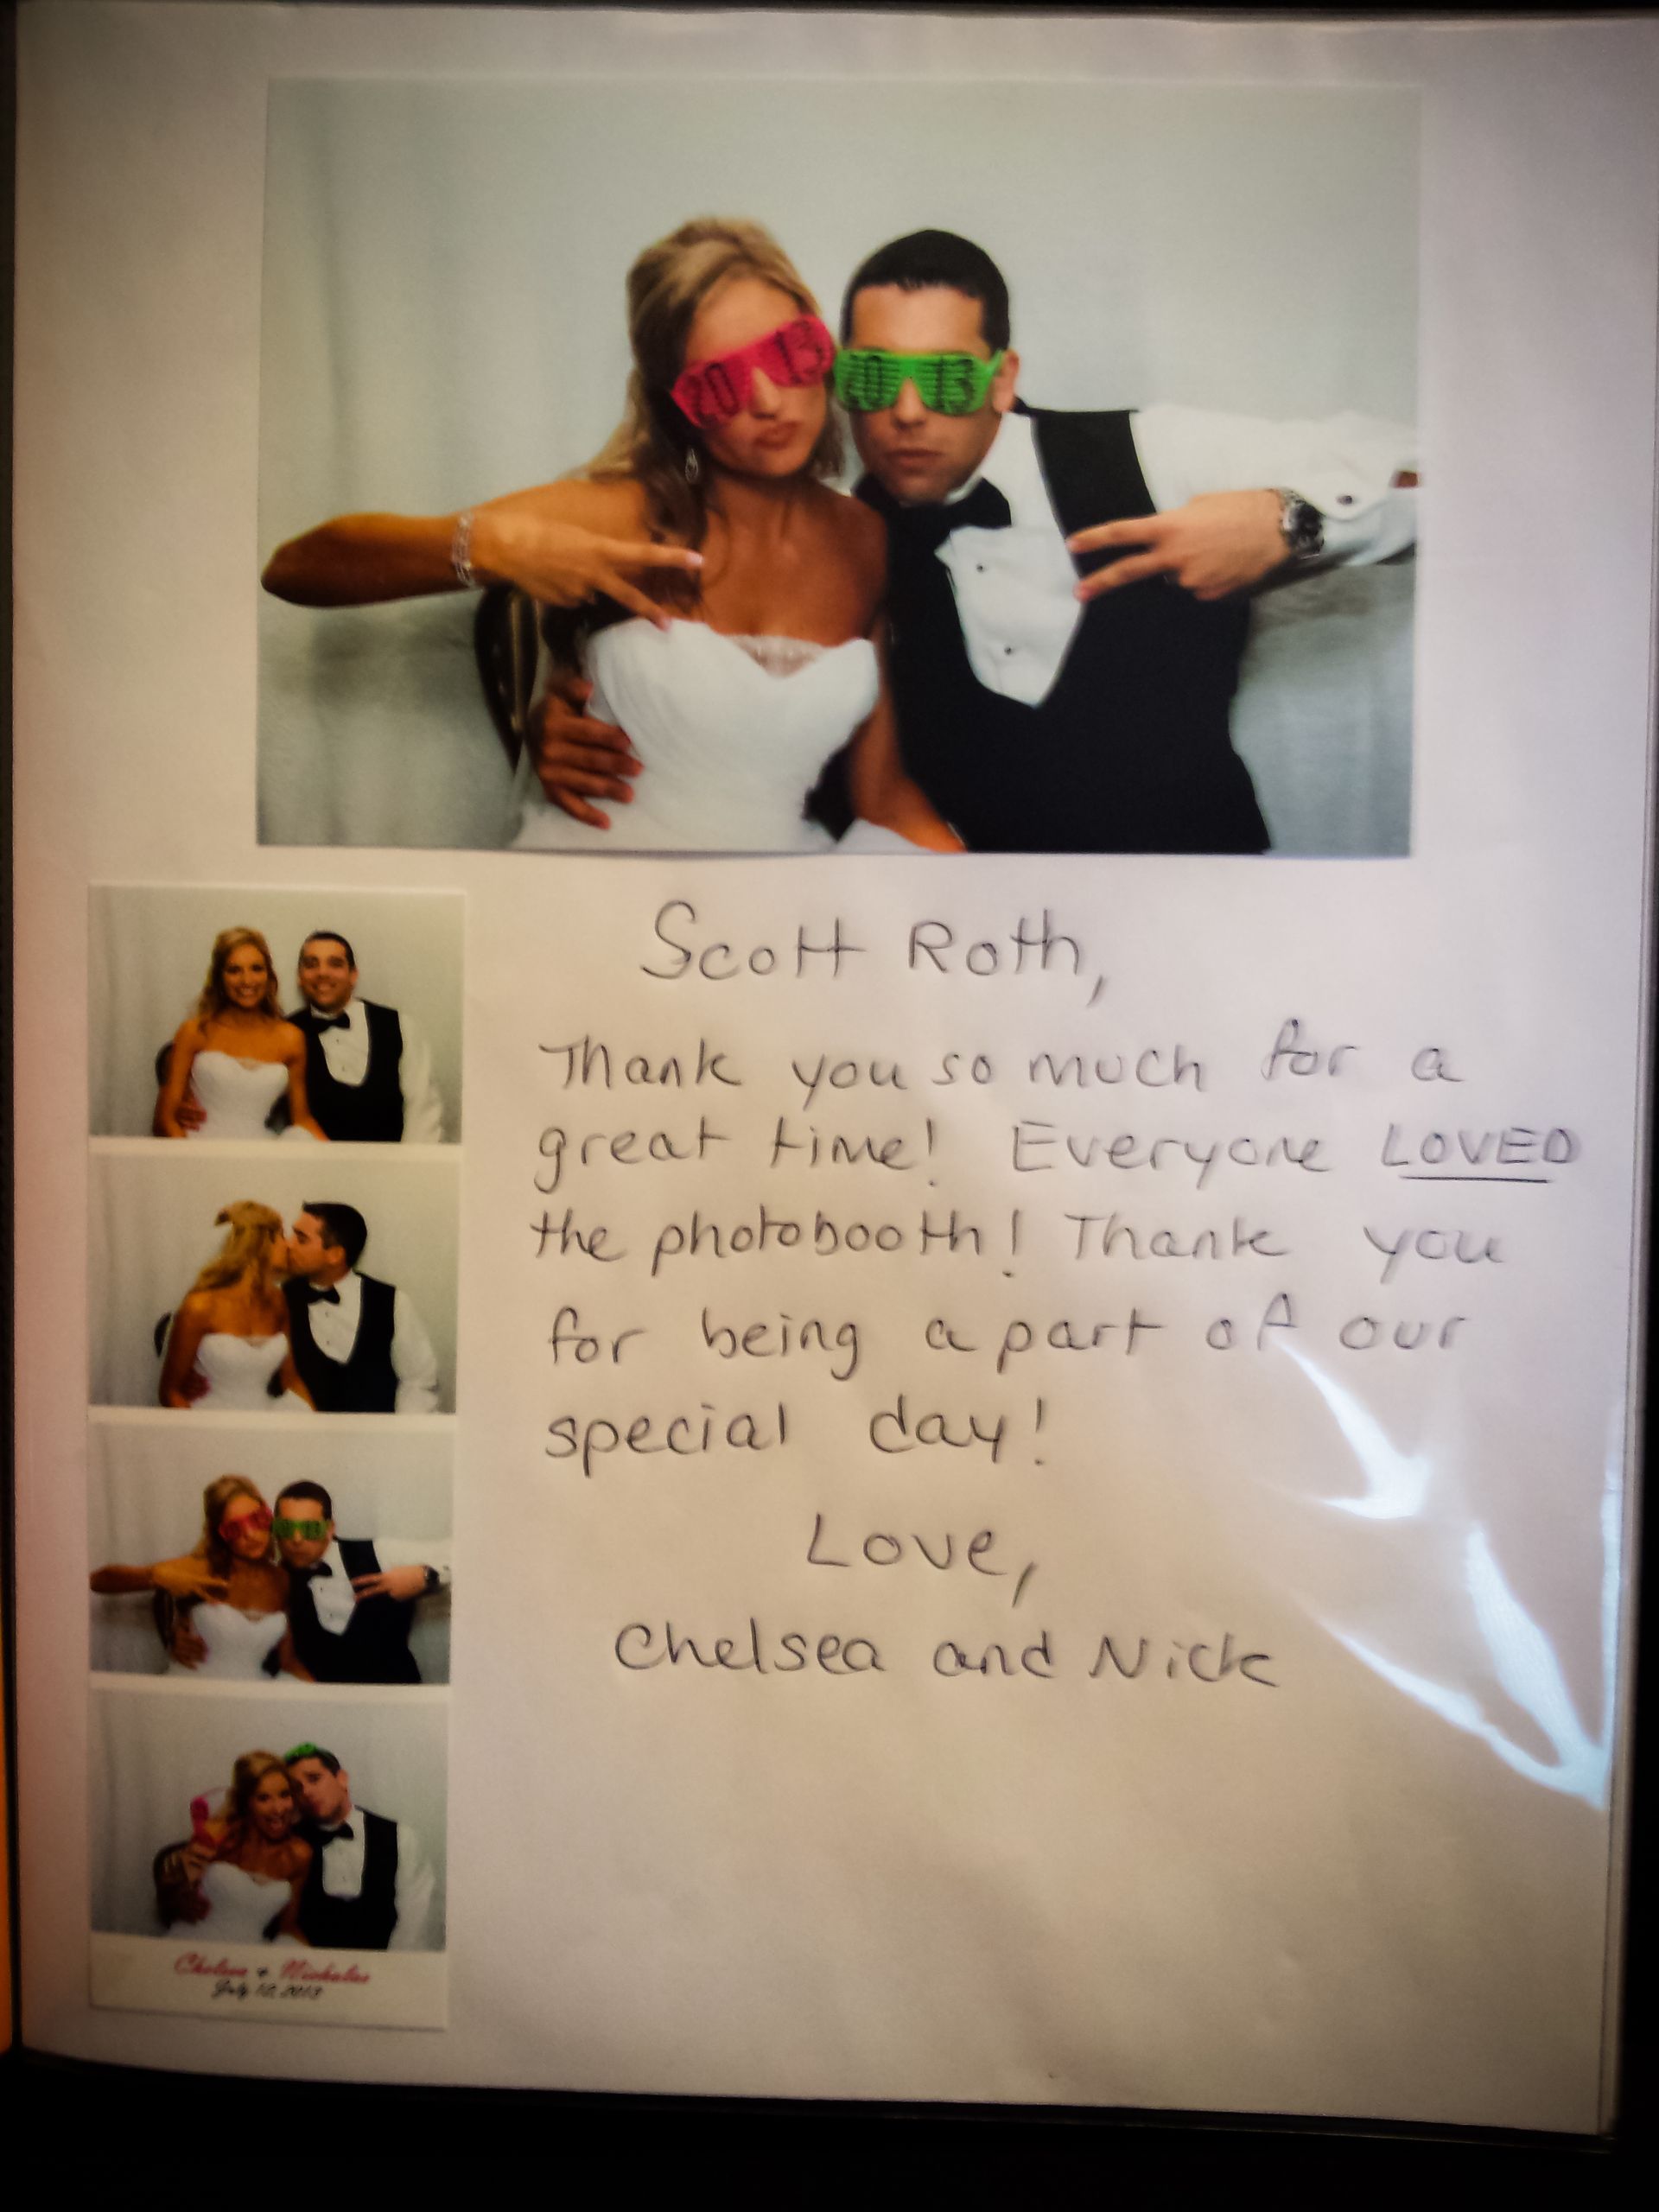 20 13
20 13
Scott Roth,
Thank you so much for a
great time! Everyone LOVED
the photobooth! Thank you
for being a part of our
special day!
Love,
Chelsea and Nick
Chelsea & Nicholas
July 2013